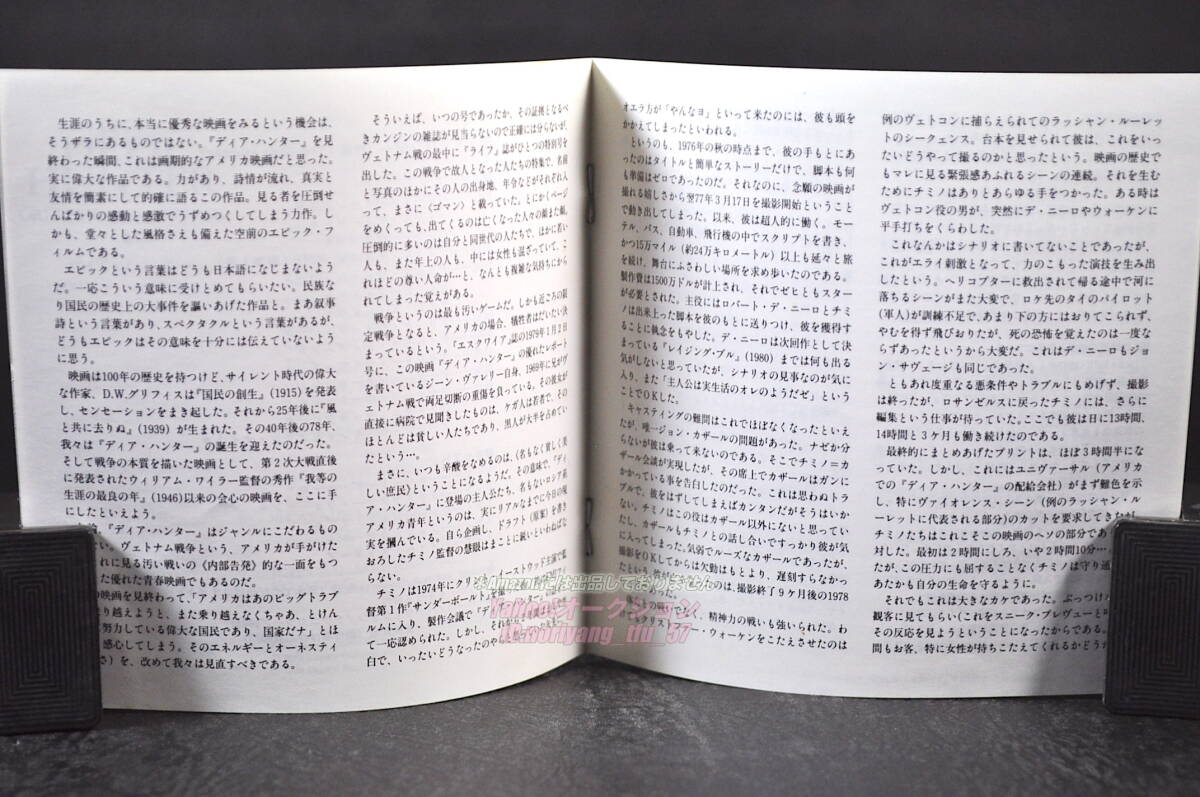 生涯のうちに、本当に優秀な映画をみるという機会は、
そうザラにあるものではない。『ディア・ハンター』を見
終わった瞬間、これは画期的なアメリカ映画だと思った。
実に偉大な作品である。力があり、詩情が流れ、真実と
友情を簡素にして的確に語るこの作品。見る者を圧倒せ
んばかりの感動と感激でうずめつくしてしまう力作。し
かも、堂々とした風格さえも備えた空前のエピック・フ
ィルムである。
エピックという言葉はどうも日本語になじまないよう
だ。一応こういう意味に受けとめてもらいたい。民族な
り国民の歴史上の大事件を謳いあげた作品と。まあ叙事
詩という言葉があり、スペクタクルという言葉があるが、
どうもエピックはその意味を十分には伝えていないよう
に思う。
映画は100年の歴史を持つけど、サイレント時代の偉大
な作家、D.W.グリフィスは『国民の創生』(1915)を発表
し、センセーションをまき起した。それから25年後に『風
と共に去りぬ』(1939)が生まれた。その40年後の78年、
我々は『ディア・ハンター』の誕生を迎えたのだった。
そして戦争の本質を描いた映画として、第2次大戦直後
に発表されたウィリアム・ワイラー監督の秀作『我等の
生涯の最良の年』(1946)以来の会心の映画を、ここに手
にしたといえよう。
『ディア・ハンター』はジャンルにこだわるもの
い。ヴェトナム戦争という、アメリカが手がけた
れに見る汚い戦いの《内部告発》的な一面をもつ
た優れた青春映画でもあるのだ。
の映画を見終わると、「アメリカはあのビッグトラブ
乗り越えようと、また乗り越えなくちゃあ、とけん
努力している偉大な国民であり、国家だナ」とほ
感心してしまう。そのエネルギーとオーネスティ
さ)を、改めて我々は見直すべきである。
そういえば、いつの号であったか、その証拠となるべ
きカンジンの雑誌が見当らないので正確には分らないが、
ヴェトナム戦の最中に『ライフ』誌がひとつの特別号を
出した。この戦争で故人となった人たちの特集で、名前
と写真のほかにその人の出身地、年令などがそれぞれ入
って、まさに〈ゴマン〉と載っていた。とにかくページ
をめくっても、出てくるのは亡くなった人々の顔また顔。
圧倒的に多いのは自分と同世代の人たちで、ほかに若い
人も、また年上の人も、中には女性も混ざっていて、こ
れほどの尊い人命が…と、なんとも複雑な気持ちにから
れてしまった覚えがある。
戦争というのは最も汚いゲームだ。しかも近ごろの限
定戦争となると、アメリカの場合、犠牲者はだいたい決
まっているという。『エスクワイア』誌の1979年1月2日
号に、この映画『ディア・ハンター』の優れたレポート
を書いているジーン・ヴァレリー自身、1969年に兄がヴ
ェトナム戦で両足切断の重傷を負っている。その彼女が
直後に病院で見聞きしたものは、ケガ人は若者で、その
ほとんどは貧しい人たちであり、黒人が大半を占めてい
たという…。
まさに、いつも辛酸をなめるのは、〈名もなく貧しく美
しい庶民〉ということになるようだ。その意味で、『ディ
ア・ハンター』に登場の主人公たち、名もないロシア系
アメリカ青年というのは、実にリアルなまでに今日の現
実を掴んでいる。自ら企画し、ドラフト(原案)を書き
おろしたチミノ監督の慧眼はまことに鋭いといわねばな
らない。
チミノは1974年にクリント・イーストウッド主演で監
督第1作『サンダーボルト』を撮
ルムに入り、製作会議で『デ
て一応認められた。しかし、それか
白で、いったいどうなったのや
オエラ方が「やんなヨ」といって来たのには、彼も頭を
かかえてしまったといわれる。
というのも、1976年の秋の時点まで、彼の手もとにあ
ったのはタイトルと簡単なストーリーだけで、脚本も何
も準備はゼロであったのだ。それなのに、念願の映画が
撮れる嬉しさから翌77年3月17日を撮影開始ということ
で動き出してしまった。以来、彼は超人的に働く。モー
テル、バス、自動車、飛行機の中でスクリプトを書き、
かつ15万マイル(約24万キロメートル)以上も延々と旅
を続け、舞台にふさわしい場所を求め歩いたのである。
製作費は1500万ドルが計上され、それでゼヒともスター
が必要とされた。主役にはロバート・デ・ニーロとチミ
ノは出来上った脚本を彼のもとに送りつけ、彼を獲得す
ることに執念をもやした。デ・ニーロは次回作として決
まっている『レイジング・ブル』(1980)までは何も出る
気がしないと思っていたが、シナリオの見事なのが気に
入り、また「主人公は実生活のオレのようだぜ」という
ことでOKした。
キャスティングの難問はこれでほぼなくなったといえ
たが、唯一ジョン・カザールの問題があった。ナゼか分
らないが彼は乗って来ないのである。そこでチミノ=カ
ザール会談が実現したが、その席上でカザールはガンに
かかっている事を告白したのだった。これは思わぬトラ
ブルで、彼をはずしてしまえばカンタンだがそうはいか
ない。チミノはこの役はカザール以外にないと思ってい
たし、カザールもチミノとの話し合いですっかり彼が気
に入ってしまった。気弱でルーズなカザールであったが、
撮影をOKしてからは欠勤はもとより、遅刻すらなかっ
たという。彼が
は、撮影終了9ヶ月後の1978
精神力の戦いも強いられた。わ
クリストファー・ウォーケンをこたえさせたのは
例のヴェトコンに捕らえられてのラッシャン・ルーレッ
トのシークェンス。台本を見せられて彼は、これをいっ
たいどうやって撮るのかと思ったという。映画の歴史で
もマレに見る緊張感あふれるシーンの連続。それを生む
ためにチミノはありとあらゆる手をつかった。ある時は
ヴェトコン役の男が、突然にデ・ニーロやウォーケンに
平手打ちをくらわした。
これなんかはシナリオに書いてないことであったが、
これがエライ刺激となって、力のこもった演技を生み出
したという。ヘリコプターに救出されて帰る途中で河に
落ちるシーンがまた大変で、ロケ先のタイのパイロット
(軍人)が訓練不足で、あまり下の方にはおりてこられず、
やむを得ず飛びおりたが、死の恐怖を覚えたのは一度な
らずあったというから大変だ。これはデ・ニーロもジョ
ン・サヴェージも同じであった。
ともあれ度重なる悪条件やトラブルにもめげず、撮影
は終ったが、ロサンゼルスに戻ったチミノには、さらに
編集という仕事が待っていた。ここでも彼は日に13時間、
14時間と3ケ月も働き続けたのである。
最終的にまとめあげたプリントは、ほぼ3時間半にな
っていた。しかし、これにはユニヴァーサル(アメリカ
での『ディア・ハンター』の配給会社)がまず難色を示
し、特にヴァイオレンス・シーン(例のラッシャン・ルー
レットに代表される部分)のカットを要求してきた
チミノたちはこれこそこの映画のヘソの部分であ
対した。最初は2時間にしろ、いや2時間10分…
が、この圧力にも屈することなくチミノは守り通
あたかも自分の生命を守るように。
それでもこれは大きなカケであった。ぶっつけ
観客に見てもらい(これをスニーク・プレヴューと
その反応を見ようということになったからである。
間もお客、特に女性が持ちこたえてくれるかどうか
※Amazonには出品しておりません
Yahoo!オークション
ID:noriyang_tdr_57